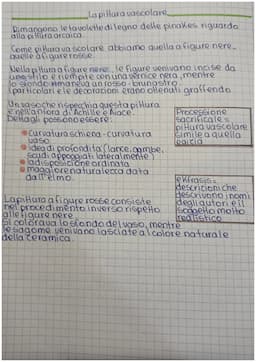 La pittura vascolare
Rimangono le tavolette di legno delle pinakes riguardo
alla pittura arcaica.
Come pittura vascolare abbiamo quella a figure nere e
quelle a figure rosse.
Nella pittura a figure nere, le figure venivano incise da
uno stilo e riempite con una vernice nera, mentre
lo sfondo rimaneva un rosso-brunastro.
I particolari e le decorazioni erano ottenuti graffendo.
Un vaso che rispecchia questa pittura
è nell'anfora di Achille e Aiace.
Dettagli possono essere:
curvatura schiena - curvatura
vaso
idea di profondità (lance, gambe,
scudi appoggiati lateralmente)
la disposizione ordinata
maggiore naturalezza data
dall'elmo.
Processione
sacrificale =
pittura vascolare
simile a quella
calcia
La pittura a figure rosse consiste
nel procedimento inverso rispetto
alle figure nere.
Si colorava lo sfondo del vaso, mentre
le sagome venivano lasciate al colore naturale
della ceramica.
ekfrasis =
descrizioni che
descrivono i nomi
degli autori e il
soggetto molto
realistico